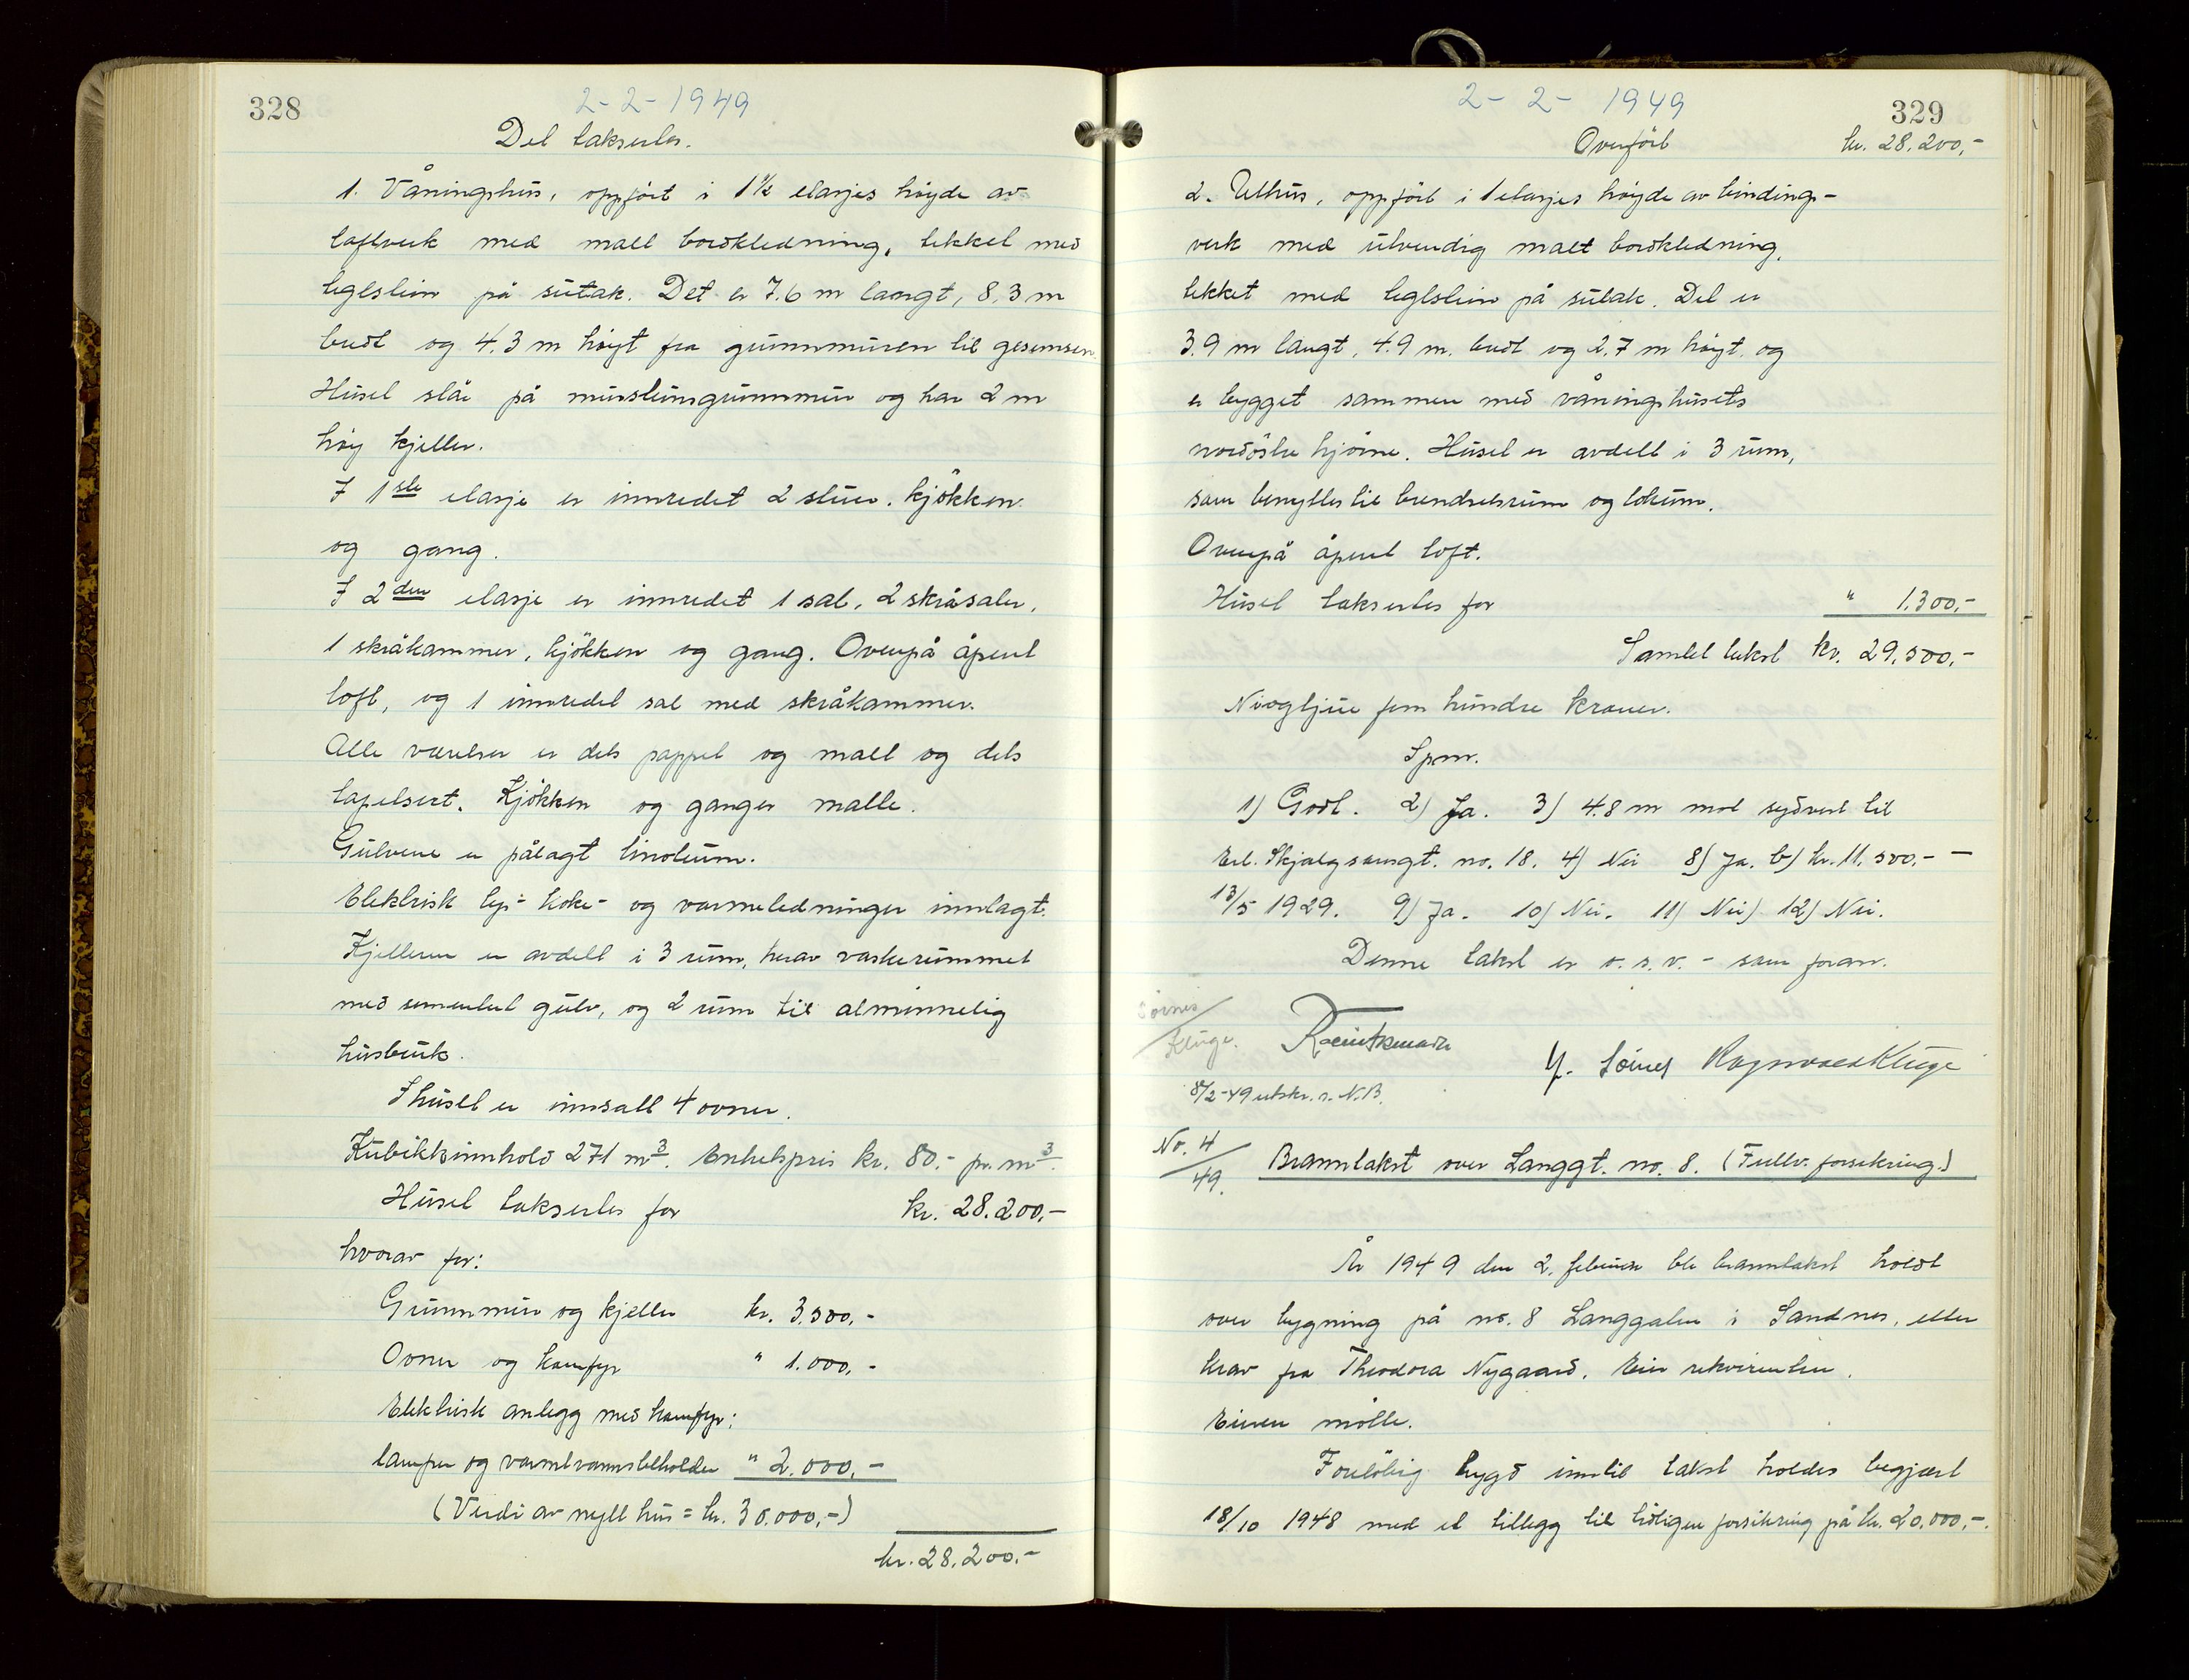 328
2-2-1949
Det takserles.
1. Våningshus, oppført i 1½ etasjes høyde av
laftverk med malt bordkledning, tekket med
teglstein på sutak. Det er 7.6 m langt, 8,3 m
bredt og 4.3 m høyt fra grunnmuren til gesemsen.
Huset står på murstensgrunnmur og har 2 m
høy kjeller.
I 1ste etasje er innredet 2 stuer, kjøkken
og gang.
I 2den etasje er innredet 1 sal, 2 skråsaler,
1 skråkammer, kjøkken og gang. Ovenpå åpent
loft, og 1 innredet sal med skråkammer.
Alle værelser er dels pappet og malt og dels
tapetsert. Kjøkken og ganger malte.
Gulvene er pålagt linoleum.
Elektrisk lys- koke- og varmeledninger innlagt.
Kjelleren er avdelt i 3 rum, herav vaskerummet
med sementert gulv, og 2 rum til alminnelig
husbruk.
I huset er innsatt 4 ovner.
Kubikkinnhold 271 m3. Enhetspris kr. 80.- pr. m3.
Huset takserles for kr. 28.200,-
hvorav for:
Grunnmur og kjeller kr. 3.500,-
Ovner og komfyr " 1.000,-
Elektrisk anlegg med komfyr;
lamper og varmtvannsbeholder " 2.000,-
(Verdi av nytt hus = kr. 30.000,-)
kr. 28.200.-
2-2-1949
329
Overført kr. 28.200,-
2. Uthus, oppført i 1 etasjes høyde av bindings-
verk med utvendig malt bordkledning,
tekket med teglstein på sutak. Det er
3.9 m langt, 4.9 m. bredt og 2.7 m høyt. og
er bygget sammen med våningshusets
nordøstre hjørne. Huset er avdelt i 3 rum,
som benyttes til brendselsrum og lokum.
Ovenpå åpent loft.
Huset takserles for " 1.300,-
Samlet takst kr. 29,500,-
Niogtjue fem hundre kroner.
Spm.
1) Godt. 2) Ja. 3) 4.8 m mot sydvest til
Erl. Skjalgsonsgt. no. 18. 4) Nei 8) Ja. b) kr. 11.500.- -
13/5 1929. 9) Ja. 10) Nei. 11) Nei) 12) Nei.
Denne takst er o. s. v. - som foran.
Sørnes
Kluge.
Y. Sørnes Ragnvald Kluge
8/2-49 utskr. s. N.B.
No. 4
49.
Branntakst over Langgt. no. 8. (Fullv. forsikring.)
År 1949 den 2. februar ble branntakst holdt
over bygning på no. 8 Langgaten i Sandnes, etter
krav fra Theodora Nygaard. Eier rekvirenten.
Eieren møtte.
Foreløbig brygd inntil takst holdes begjært
18/10 1948 med et tillegg til tidligere forsikring på kr. 20.000,-.